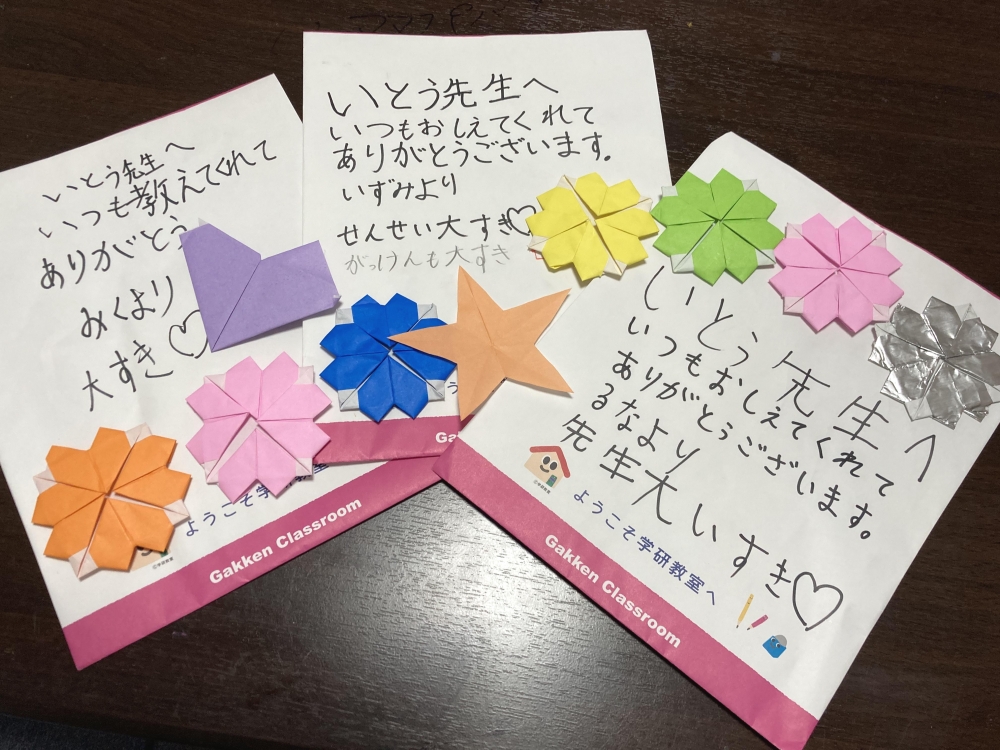 いとう先生へ
いつも教えてくれて
ありがとう
みくより
大すき♡
ようこそ学研教室
Gakken Classroom
いとう先生へ
いつもおしえてくれて
ありがとうございます。
いずみより
せんせい大すき♡
がっけんも大すき
Ga
いとう先生へ
いつもおしえてくれて
ありがとうございます。
るなより
先生大いすき♡
ようこそ学研教室へ
Gakken Classroom